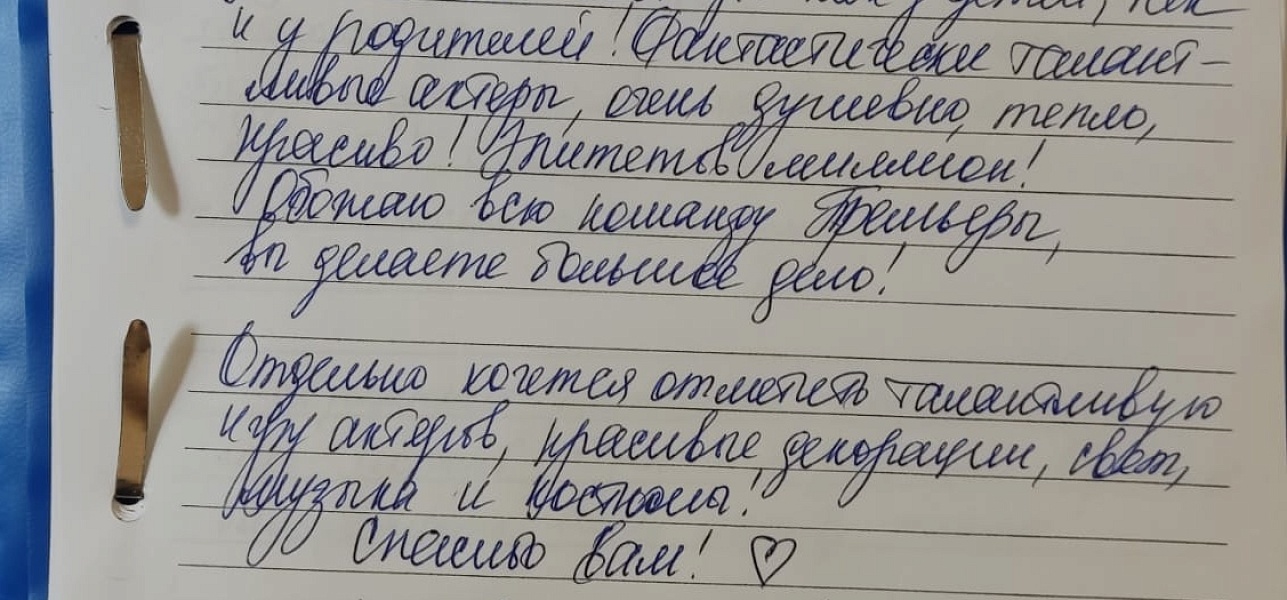 как у детей, так
и у родителей! Фантастически талант-
ливые актеры, очень душевно, тепло,
красиво! Эпитетов миллион!
Обожаю всю команду Премьеры,
вы делаете большое дело!
Отдельно хочется отметить талантливую
игру актеров, красивые декорации, свет,
музыка и костюмы!
Спасибо Вам! ♡